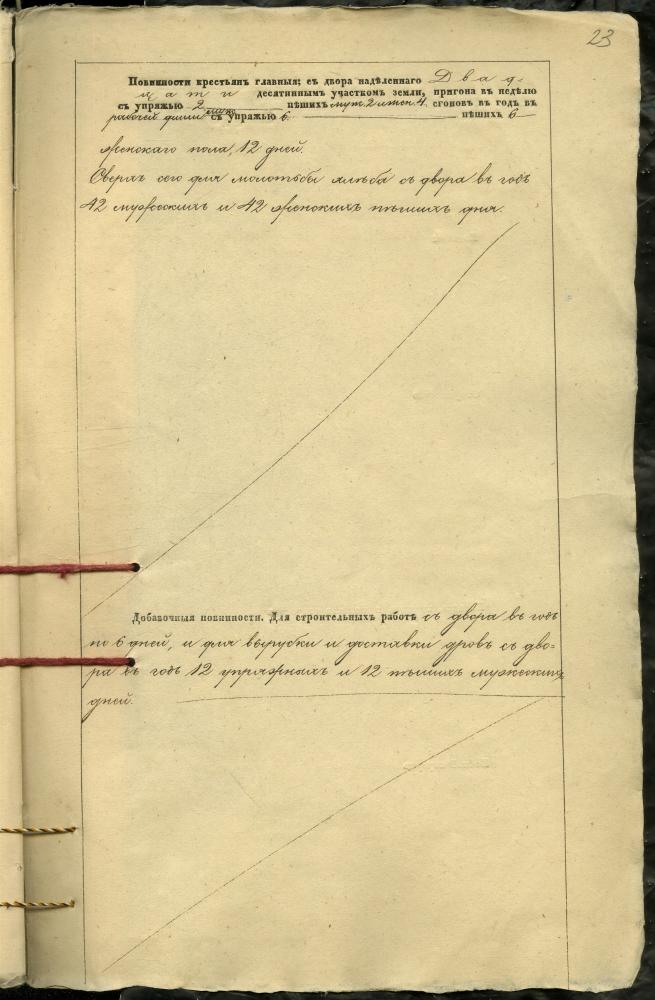 23
Повинности крестьянъ главныя; съ двора надѣленнаго Двад-
цати десятиннымъ участкомъ земли, пригона въ недѣлю
съ упряжью 2 пѣшихъ муж. 2 и жен. 4. сгоновъ въ годъ въ
рабочей съ упряжью 6. пѣшихъ 6
женскаго пола, 12 дней.
Сверхъ сего для молотьбы хлѣба съ двора въ годъ
42 мужескихъ и 42 женскихъ пѣшихъ дня.
Добавочныя повинности. Для строительныхъ работъ съ двора въ годъ
по 6 дней, и для вырубки и доставки дровъ съ дво-
ра въ годъ 12 упряжныхъ и 12 пѣшихъ мужескихъ
дней.